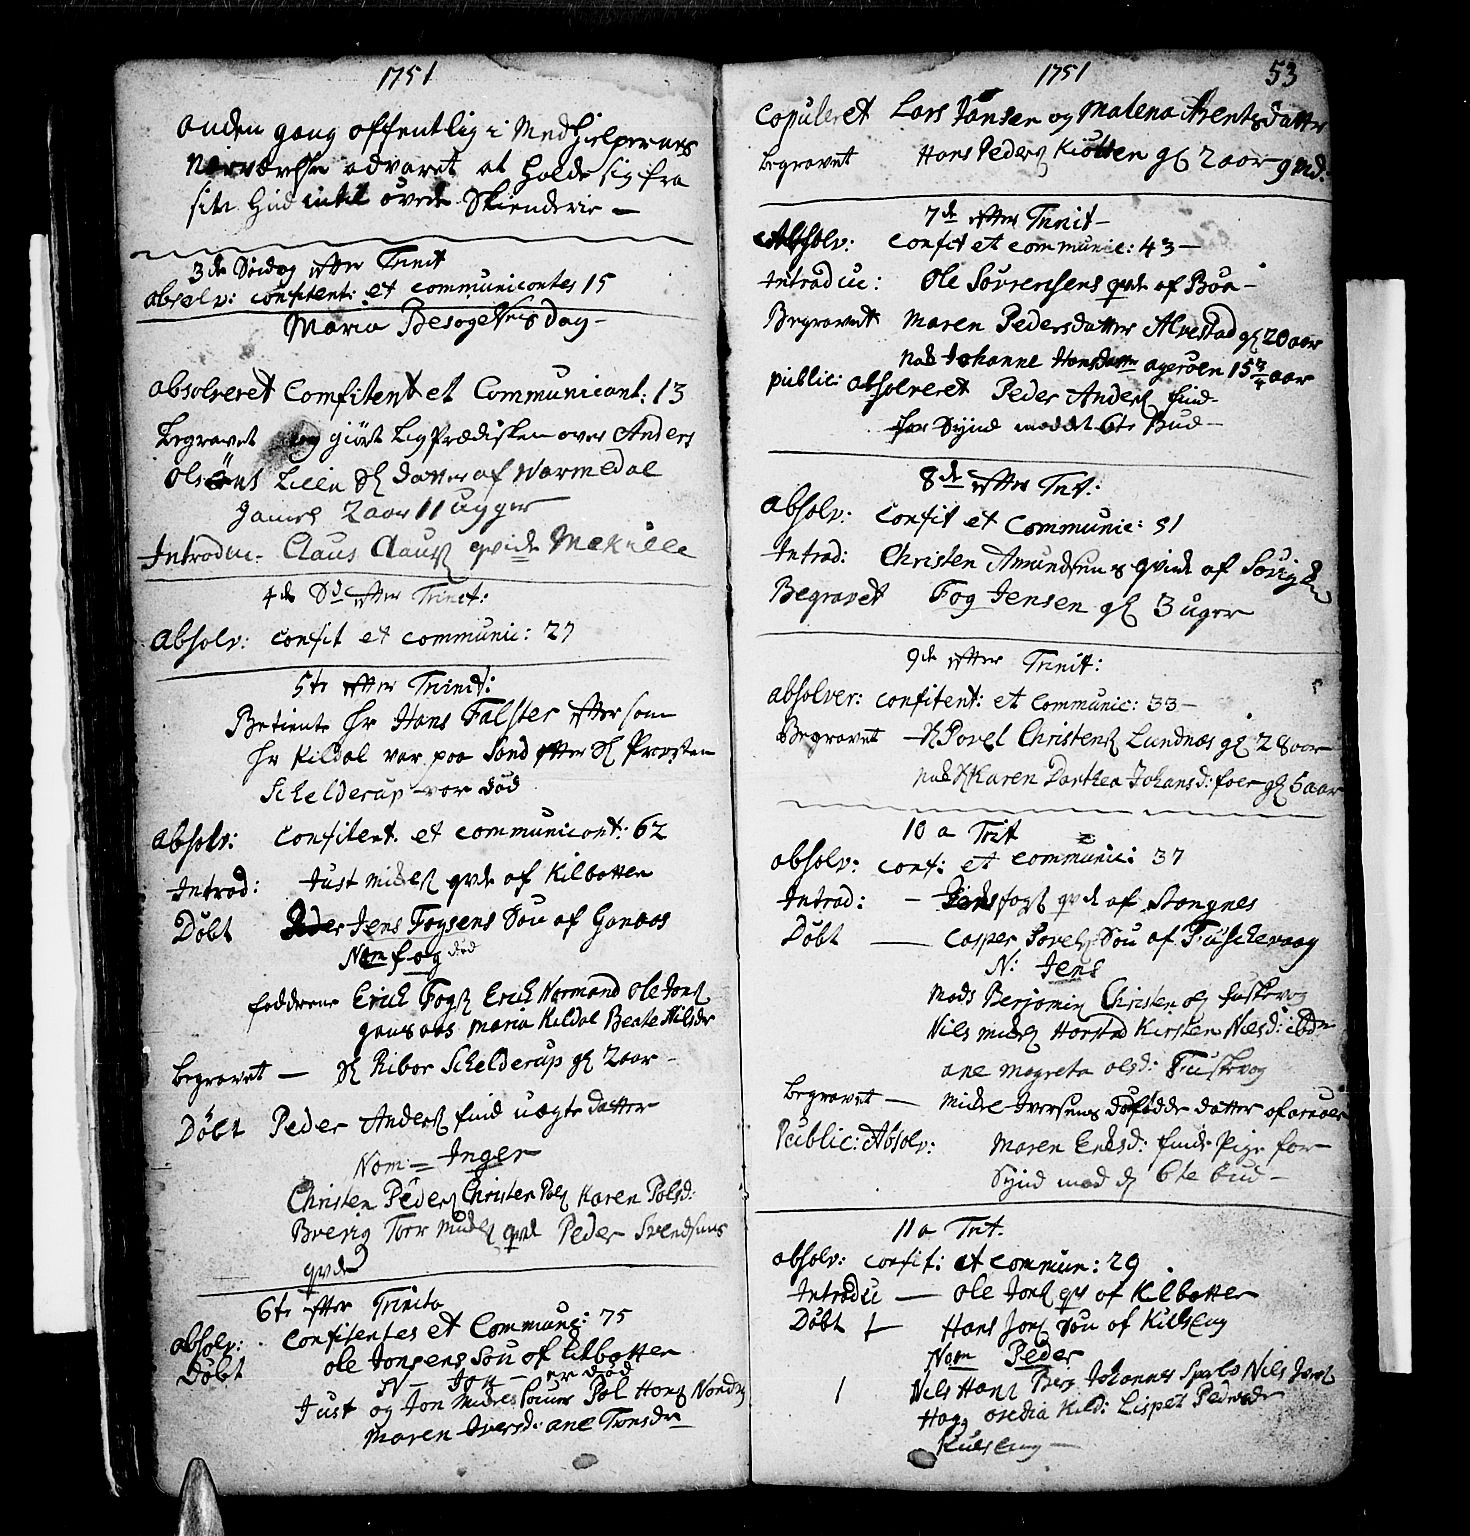 1751
anden gang offentlig i Medhielpernes
Nerværelse advaret at holde sig fra
sin indtil øvede Skienderie –
3de Søndag efter Trinit
absolv: confitent: et communicantes 15
Maria Besøgelses dag –
absolveret Comfitent et Communicant: 13
begravet og giört Lig Prædisken over Anders
Olsöns Lilen datter af Warmedal
2 aar 11 uger
Introdu – Claus Claus qvide
4de efter Trinit:
Absolv: confit et communic: 27
5te efter Trinit:
Betiente Hr Hans Falster efter som
Hr Kildal var paa Sand efter Provsten
Schelderup var död
Absolv: Confitent. et communicant: 62
Introd: Just qvde af Kilbotten
Döbt Jens Fogsens Sön af Ganaas
Nom Fog död
fadderne Erich Fogs Erich Normand Ole Jons
ganaas Maria Kildal Beate Nilsdr
begravet – Ribor Schelderup 2 aar –
Döbt Peder Anders find uægte datter
Nom – Inger
Christen Peders Christen Pols Karen Polsd:
Brevig Torr qvde Peder Svendsens
qvde
6te efter Trinita
absolv: Confitentes et Commune: 75
Döbt Ole Jonsens Sön af Kilbotten
N – Jon – er död
Just og Jon Pol Hans
Maren Iversd: ane Tomsdr
1751 53
Copuleret Lars Jansen og Malena Arentsdatter
begravet Hans Peders 2 aar 9 md:
7de efter Trinit –
Absolv: confit et communic: 43 –
Introduc: Ole Sörrensens qvde af Böa –
Begravet Maren Pedersdatter Alvestad 20 aar
nok Johanne Hansdatter 15 3/4 aar
public: absolveret Peder Anders find –
for Synd mod det 6te Bud –
8de efter Trit:
absolv: Confit et Communic: 51
Introd: Christen Amundsens qvinde af
Begravet Fog Jensen 3 uger
9de efter Trinit:
absolver: confitent: et communic: 33 –
Begravet Povel Christens Lundnæs 28 aar
nok Karen Dorthea Johansd: 5 aar
10 a Trit
absolv: conf: et communic: 37
Introd: – Jens fogs qvde af Stangnes
Döbt – Casper Povels Sön af Fuschevaag
N: Jens
Mads Benjamin Christen
Nils Harstad Kirsten Nilsd:
ane Magreta olsd: Fuskevog
begravet – Iversens dödfödde datter af
Public: Absolv: Maren Eriksd: finde Pige for
Synd mod 6te bud –
11 a Trit.
absolv: confit: et commun: 29
Introdu – Ole Jons qv af Kilbotten
Döbt – Hans Jons sön af Killeng
Nom Peder
1 Nils Hans Berg Johannes Nils
Kild: Lispet Pedersdr